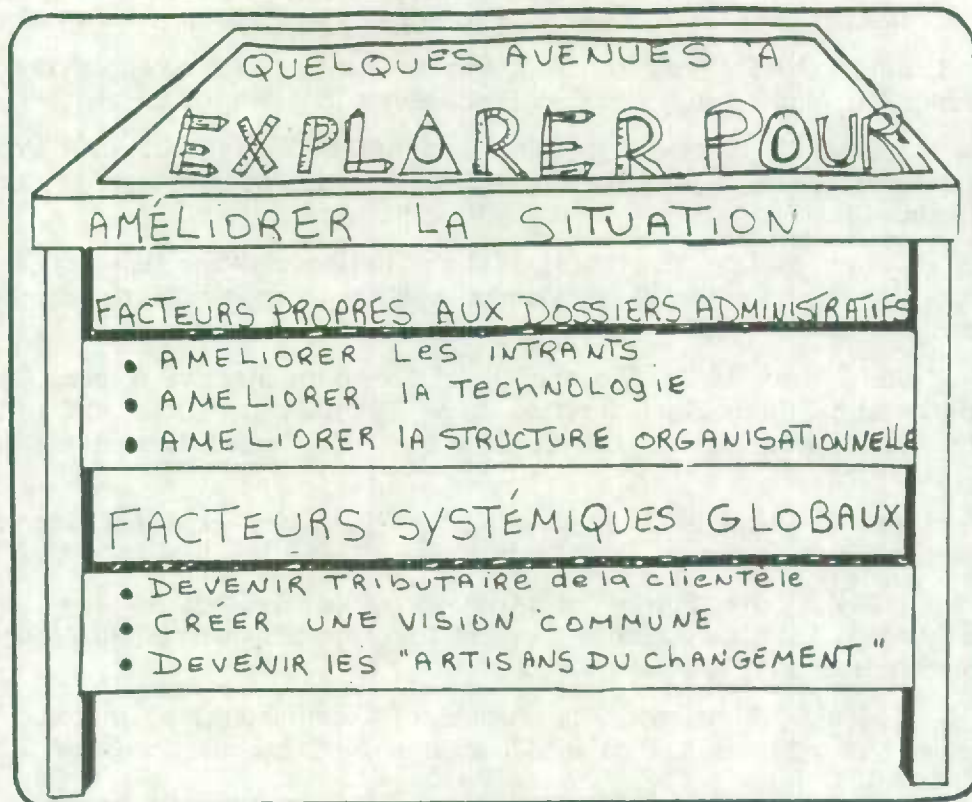 QUELQUES AVENUES À
EXPLORER POUR
AMÉLIORER LA SITUATION
FACTEURS PROPRES AUX DOSSIERS ADMINISTRATIFS
• AMELIORER LES INTRANTS
• AMELIORER lA TechNOLOgie
• AMELIORER lA STRUCTURE ORGANISATIONNEllE
FACTEURS SYSTÉMIQUES GLOBAUX
• DEVENIR TRIbUTAire de la clientèle
• CRÉER UNE VISION COMMUNE
• DEVENIR lES "ARTISANS DU ChANGEMENT"